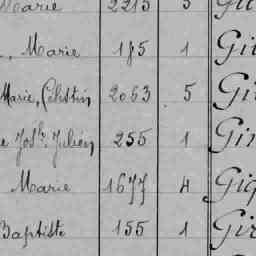 Marie 2215 5 Gi
, Marie 185 1 Gi
Marie, Célestin 2063 5 Gi
e Josh. Julien 255 1 Gir
Marie 1677 4 Gig
Baptiste 155 1 Gir